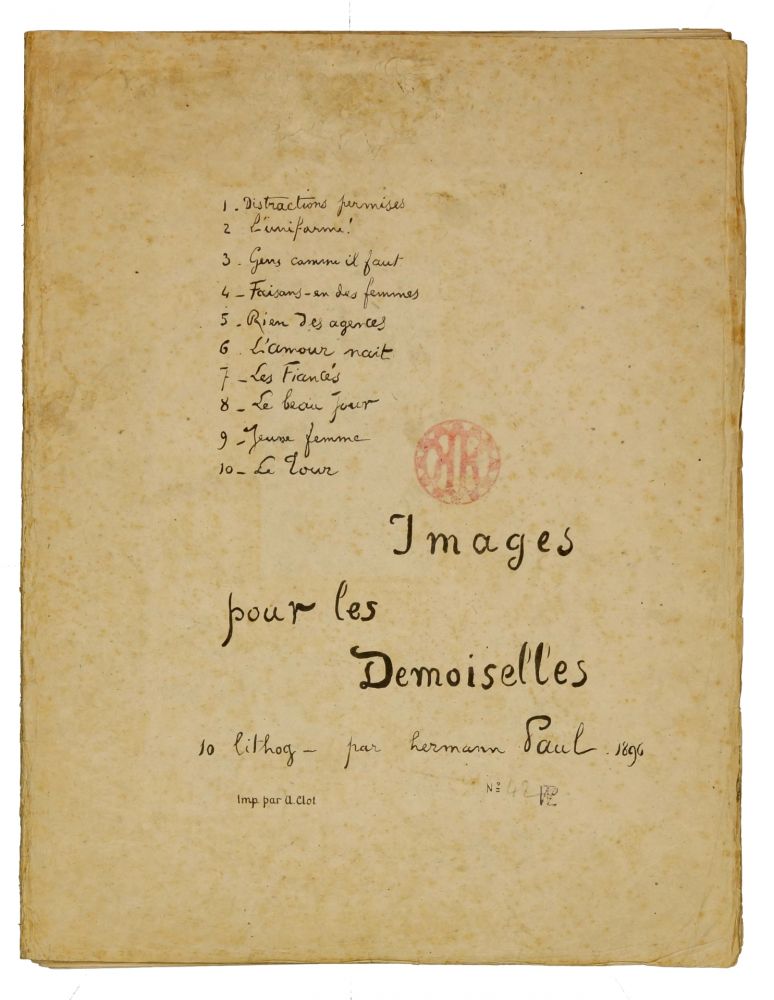 1 - Distractions permises
2 L'uniforme!
3 - Gens comme il faut
4 - Faisons-en des femmes
5 - Rien des agences
6 L'amour nait
7 - Les Fiancés
8 - Le beau Jour
9 - Jeune femme
10 - Le Tour
Images
pour les
Demoiselles
10 lithog - par hermann Paul . 1896
Imp. par A. Clot
Nº 42